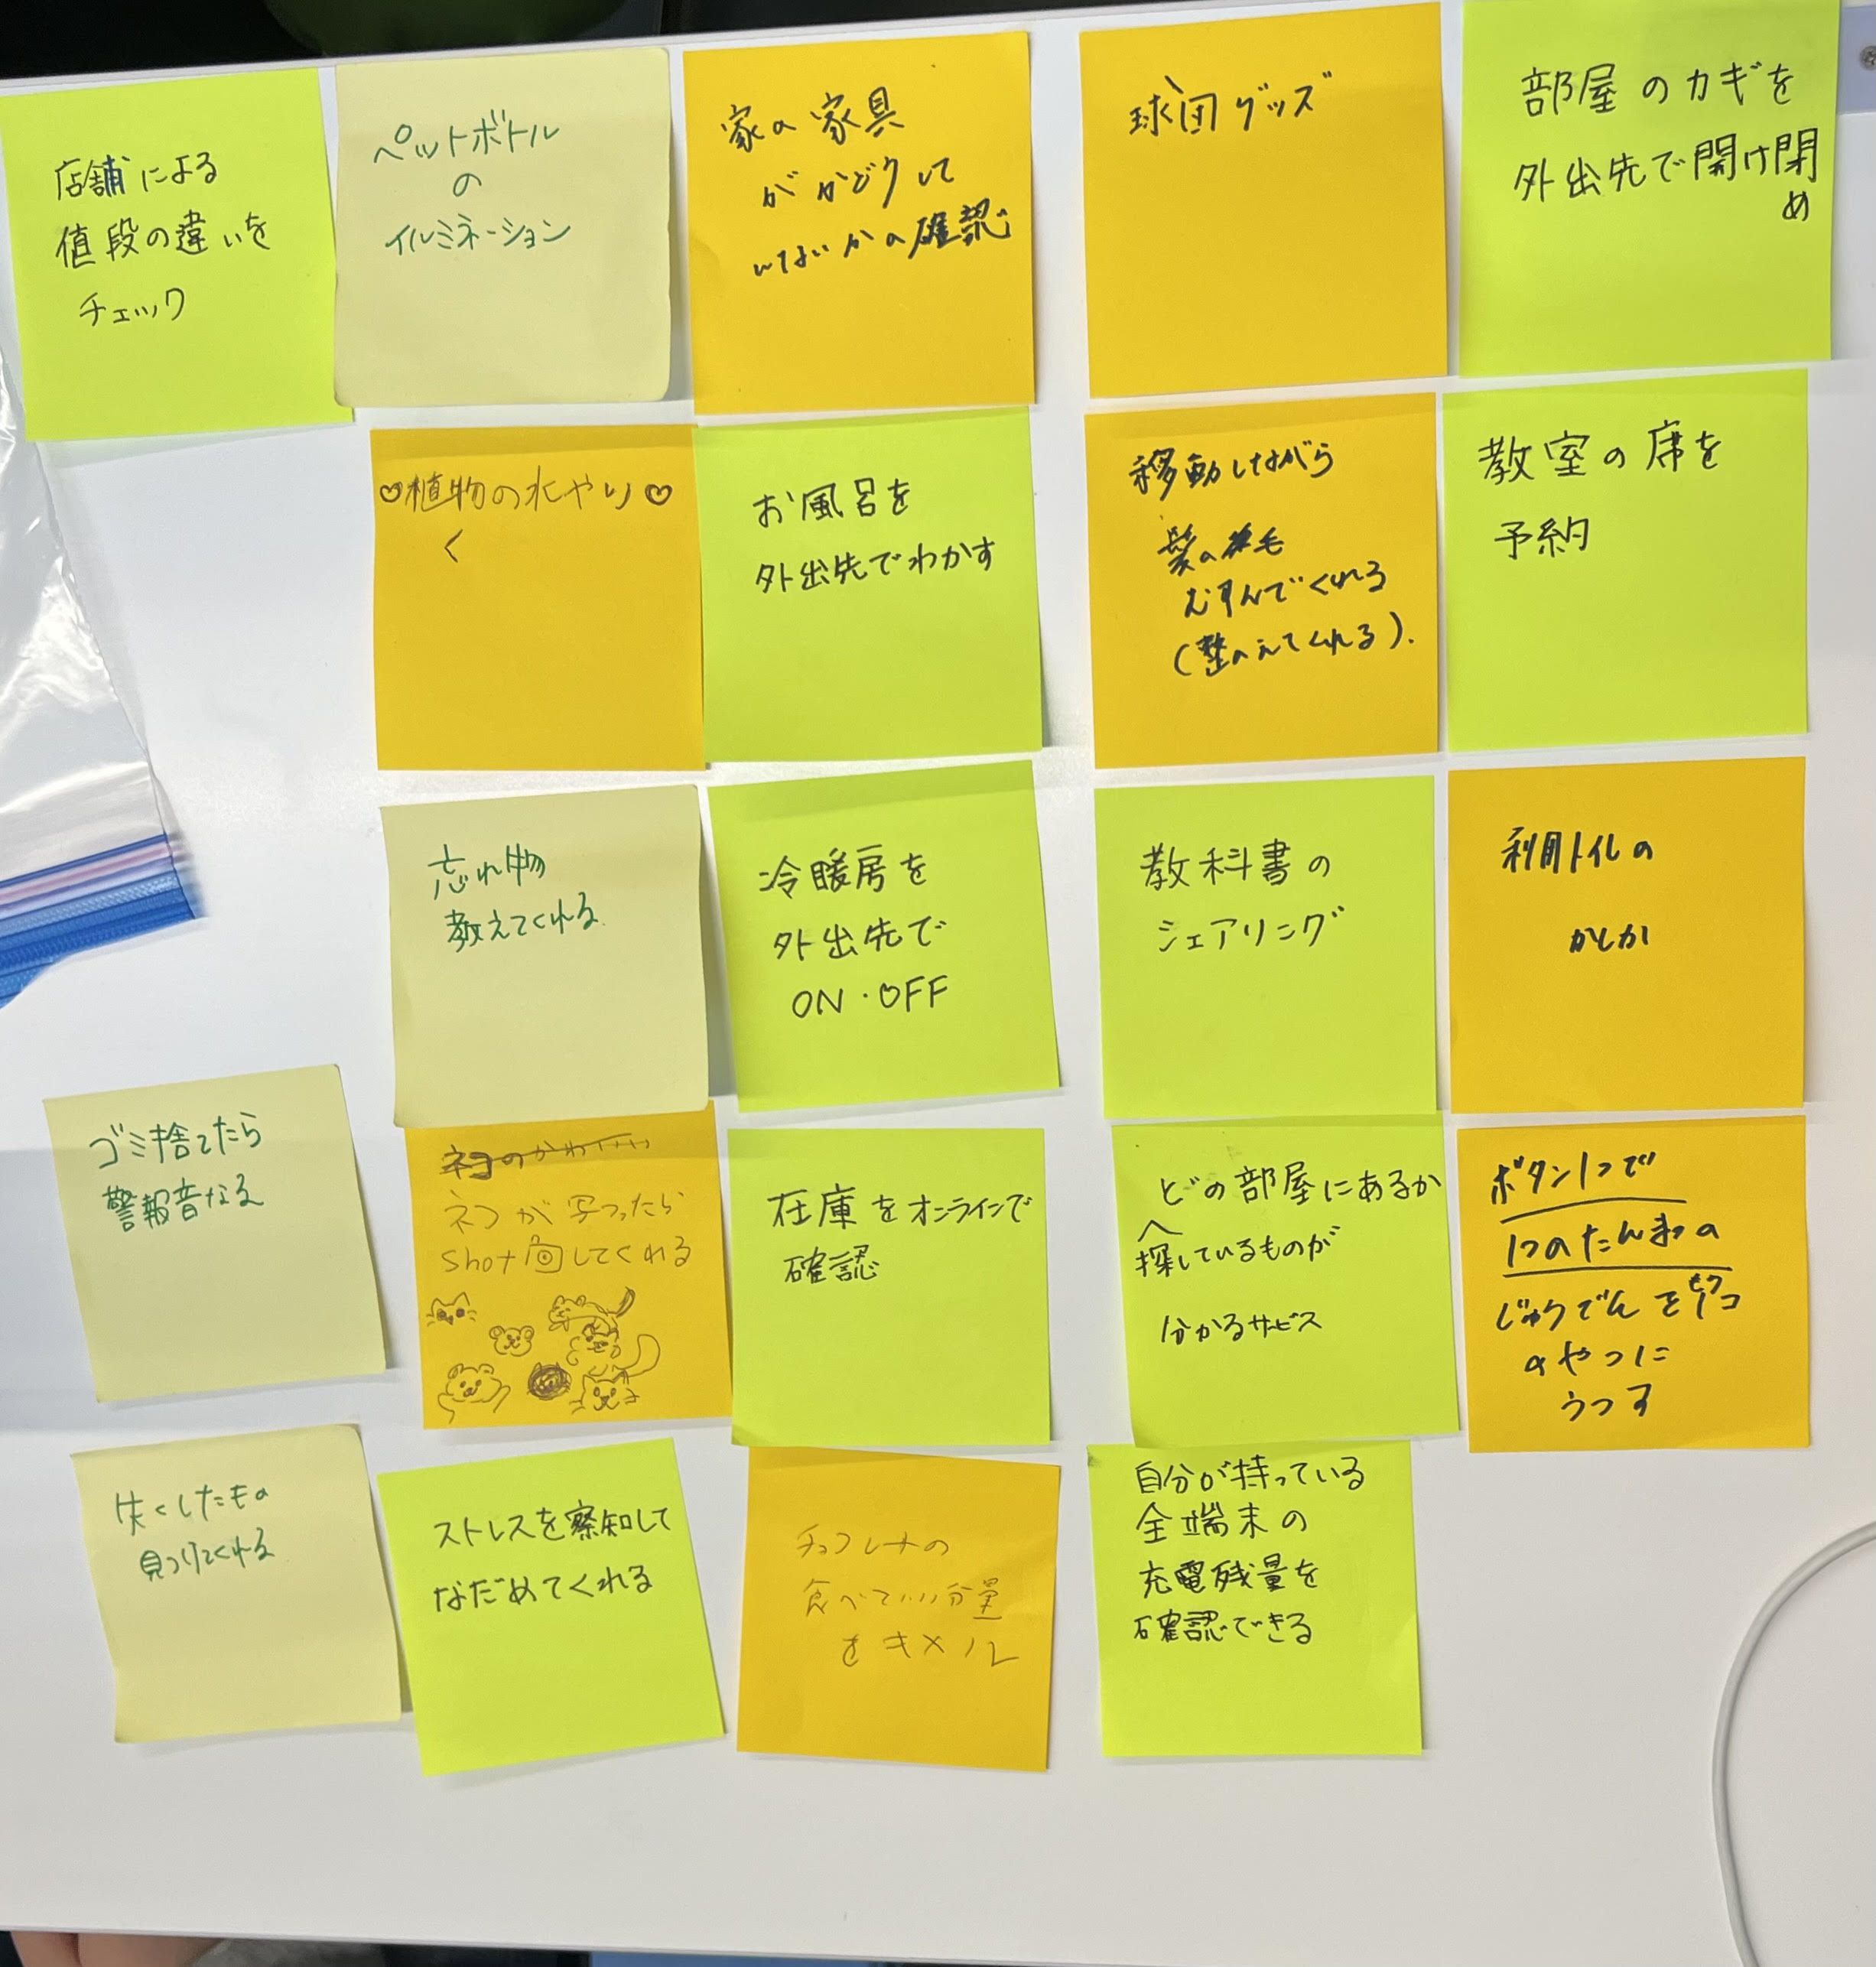 店舗による
値段の違いを
チェック
ペットボトル
の
イルミネーション
家の家具
がかどうして
いないかの確認
球団グッズ
部屋のカギを
外出先で開け閉
め
♡植物の水やり♡
く
お風呂を
外出先でわかす
移動しながら
髪の毛
むすんでくれる
(整のえてくれる).
教室の席を
予約
忘れ物
教えてくれる.
冷暖房を
外出先で
ON・OFF
教科書の
シェアリング
利用トイレの
かしか
ゴミ捨てたら
警報音なる
ネコのかわいい
ネコが写ったら
shotしてくれる
在庫をオンラインで
確認
どの部屋にあるか
探しているものが
分かるサービス
ボタン1つで
1つのたんまつの
じゅうでんをもう1コ
のやつに
うつす
失くしたもの
見つけてくれる
ストレスを察知して
なだめてくれる
チョコレートの
食べていい分量
をキメル
自分が持っている
全端末の
充電残量を
確認できる